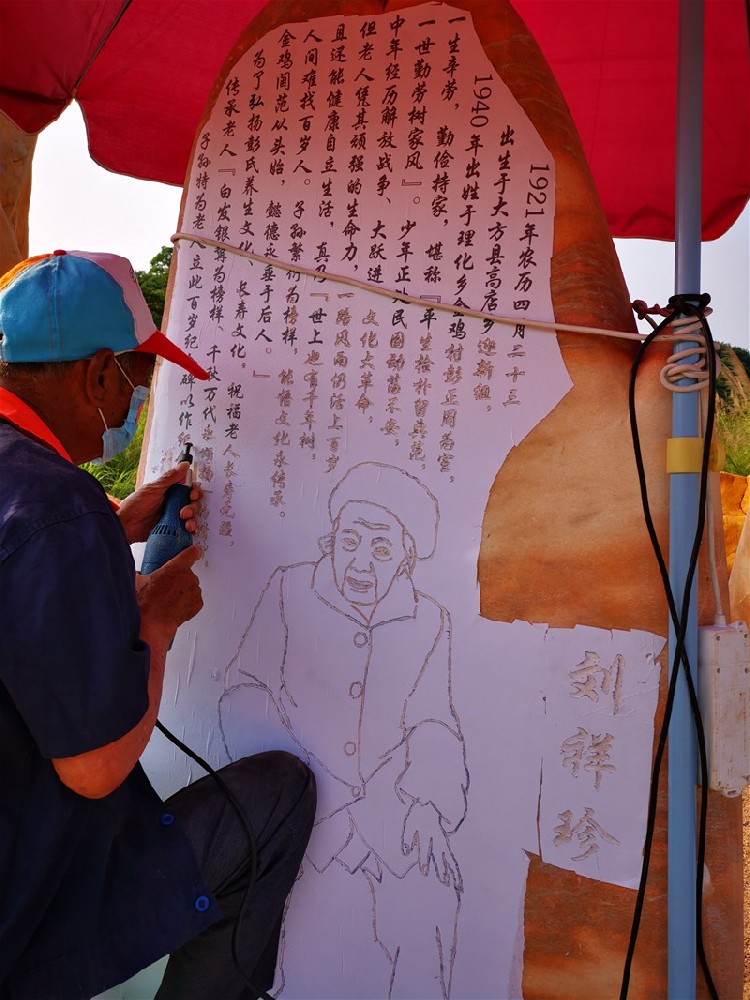 1921年农历四月二十三
出生于大方县高店乡迎新组,
1940年出姓于理化乡金鸡村彭正周为室,
一生辛劳,勤俭持家,堪称『平生俭朴留典范,
一世勤劳树家风』。少年正处民国动荡不安,
中年经历解放战争、大跃进、文化大革命,
但老人凭其顽强的生命力,一路风雨仍活上百岁
且还能健康自立生活,真乃『世上也有千年树,
人间难找百岁人。子孙繁衍为榜样,能悟文化永传承。
金鸡阃范从头始,懿德永垂于后人。』
为了弘扬彭氏养生文化、长寿文化,祝福老人长寿无疆,
传承老人『白发银眉为榜样、千秋万代永
子孙特为老人立此百岁 碑以作纪
刘祥珍